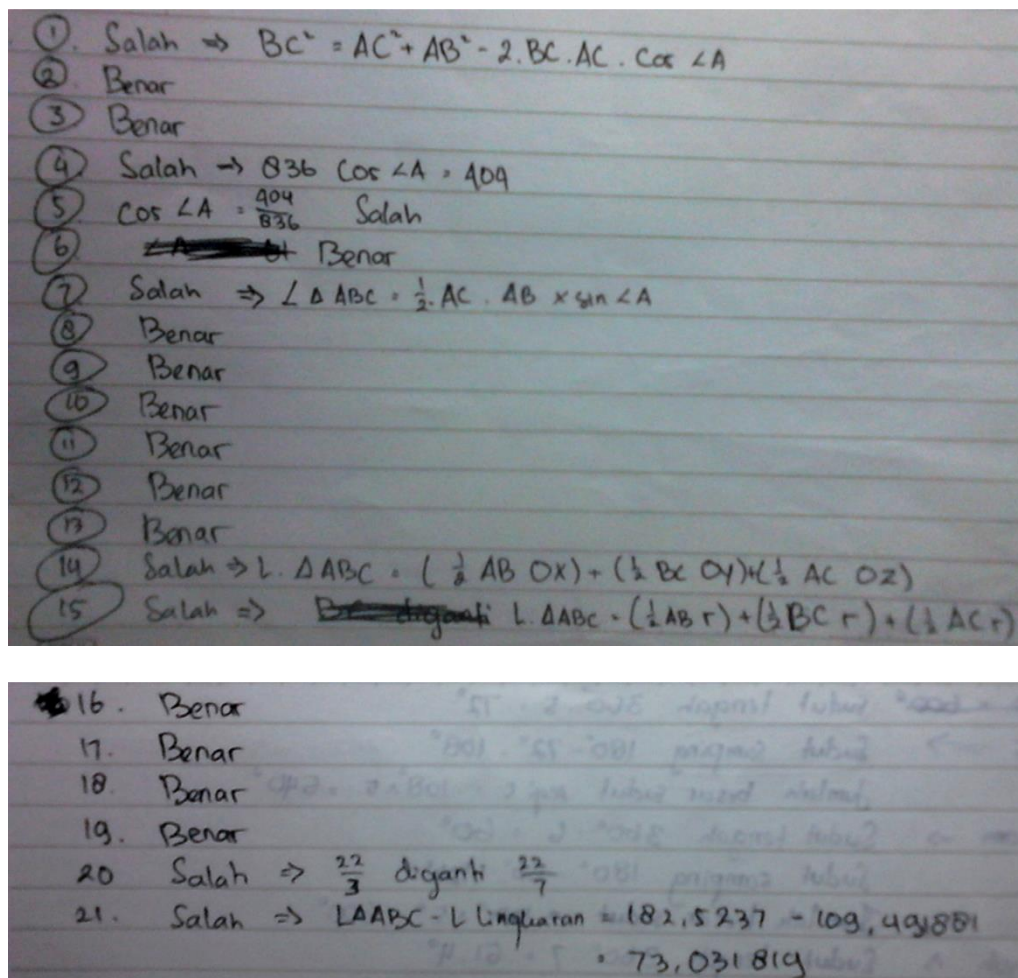 1. Salah ⇒ BC² = AC² + AB² - 2.BC.AC. Cos ∠A
2. Benar
3 Benar
4 Salah → 836 Cos ∠A = 404
5 Cos ∠A = 404/836 Salah
6 Benar
7 Salah ⇒ L Δ ABC = 1/2. AC. AB x sin ∠A
8 Benar
9 Benar
10 Benar
11 Benar
12 Benar
13 Benar
14 Salah ⇒ L. ΔABC = (1/2 AB OX) + (1/2 BC OY)+(1/2 AC OZ)
15 Salah ⇒ L. ΔABC = (1/2 AB r) + (1/2 BC r) + (1/2 AC r)
16. Benar
17. Benar
18. Benar
19. Benar
20 Salah ⇒ 22/3 diganti 22/7
21. Salah ⇒ LΔABC - L Lingkaran = 182,5237 -
= 73,031819